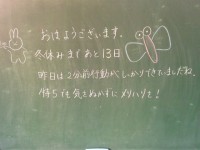 おはようございます。
冬休みまであと13日
昨日は2分前行動がしっかりできていましたね。
今日も気をぬかずにメリハリを!